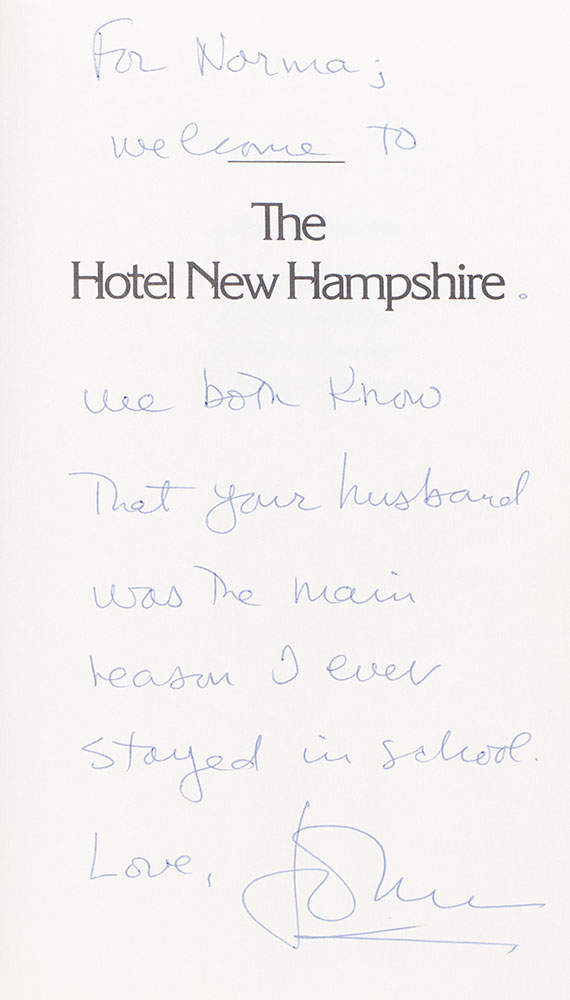 For Norma;
welcome to
The
Hotel New Hampshire.
we both know
That your husband
was The main
reason I ever
stayed in school.
Love, John